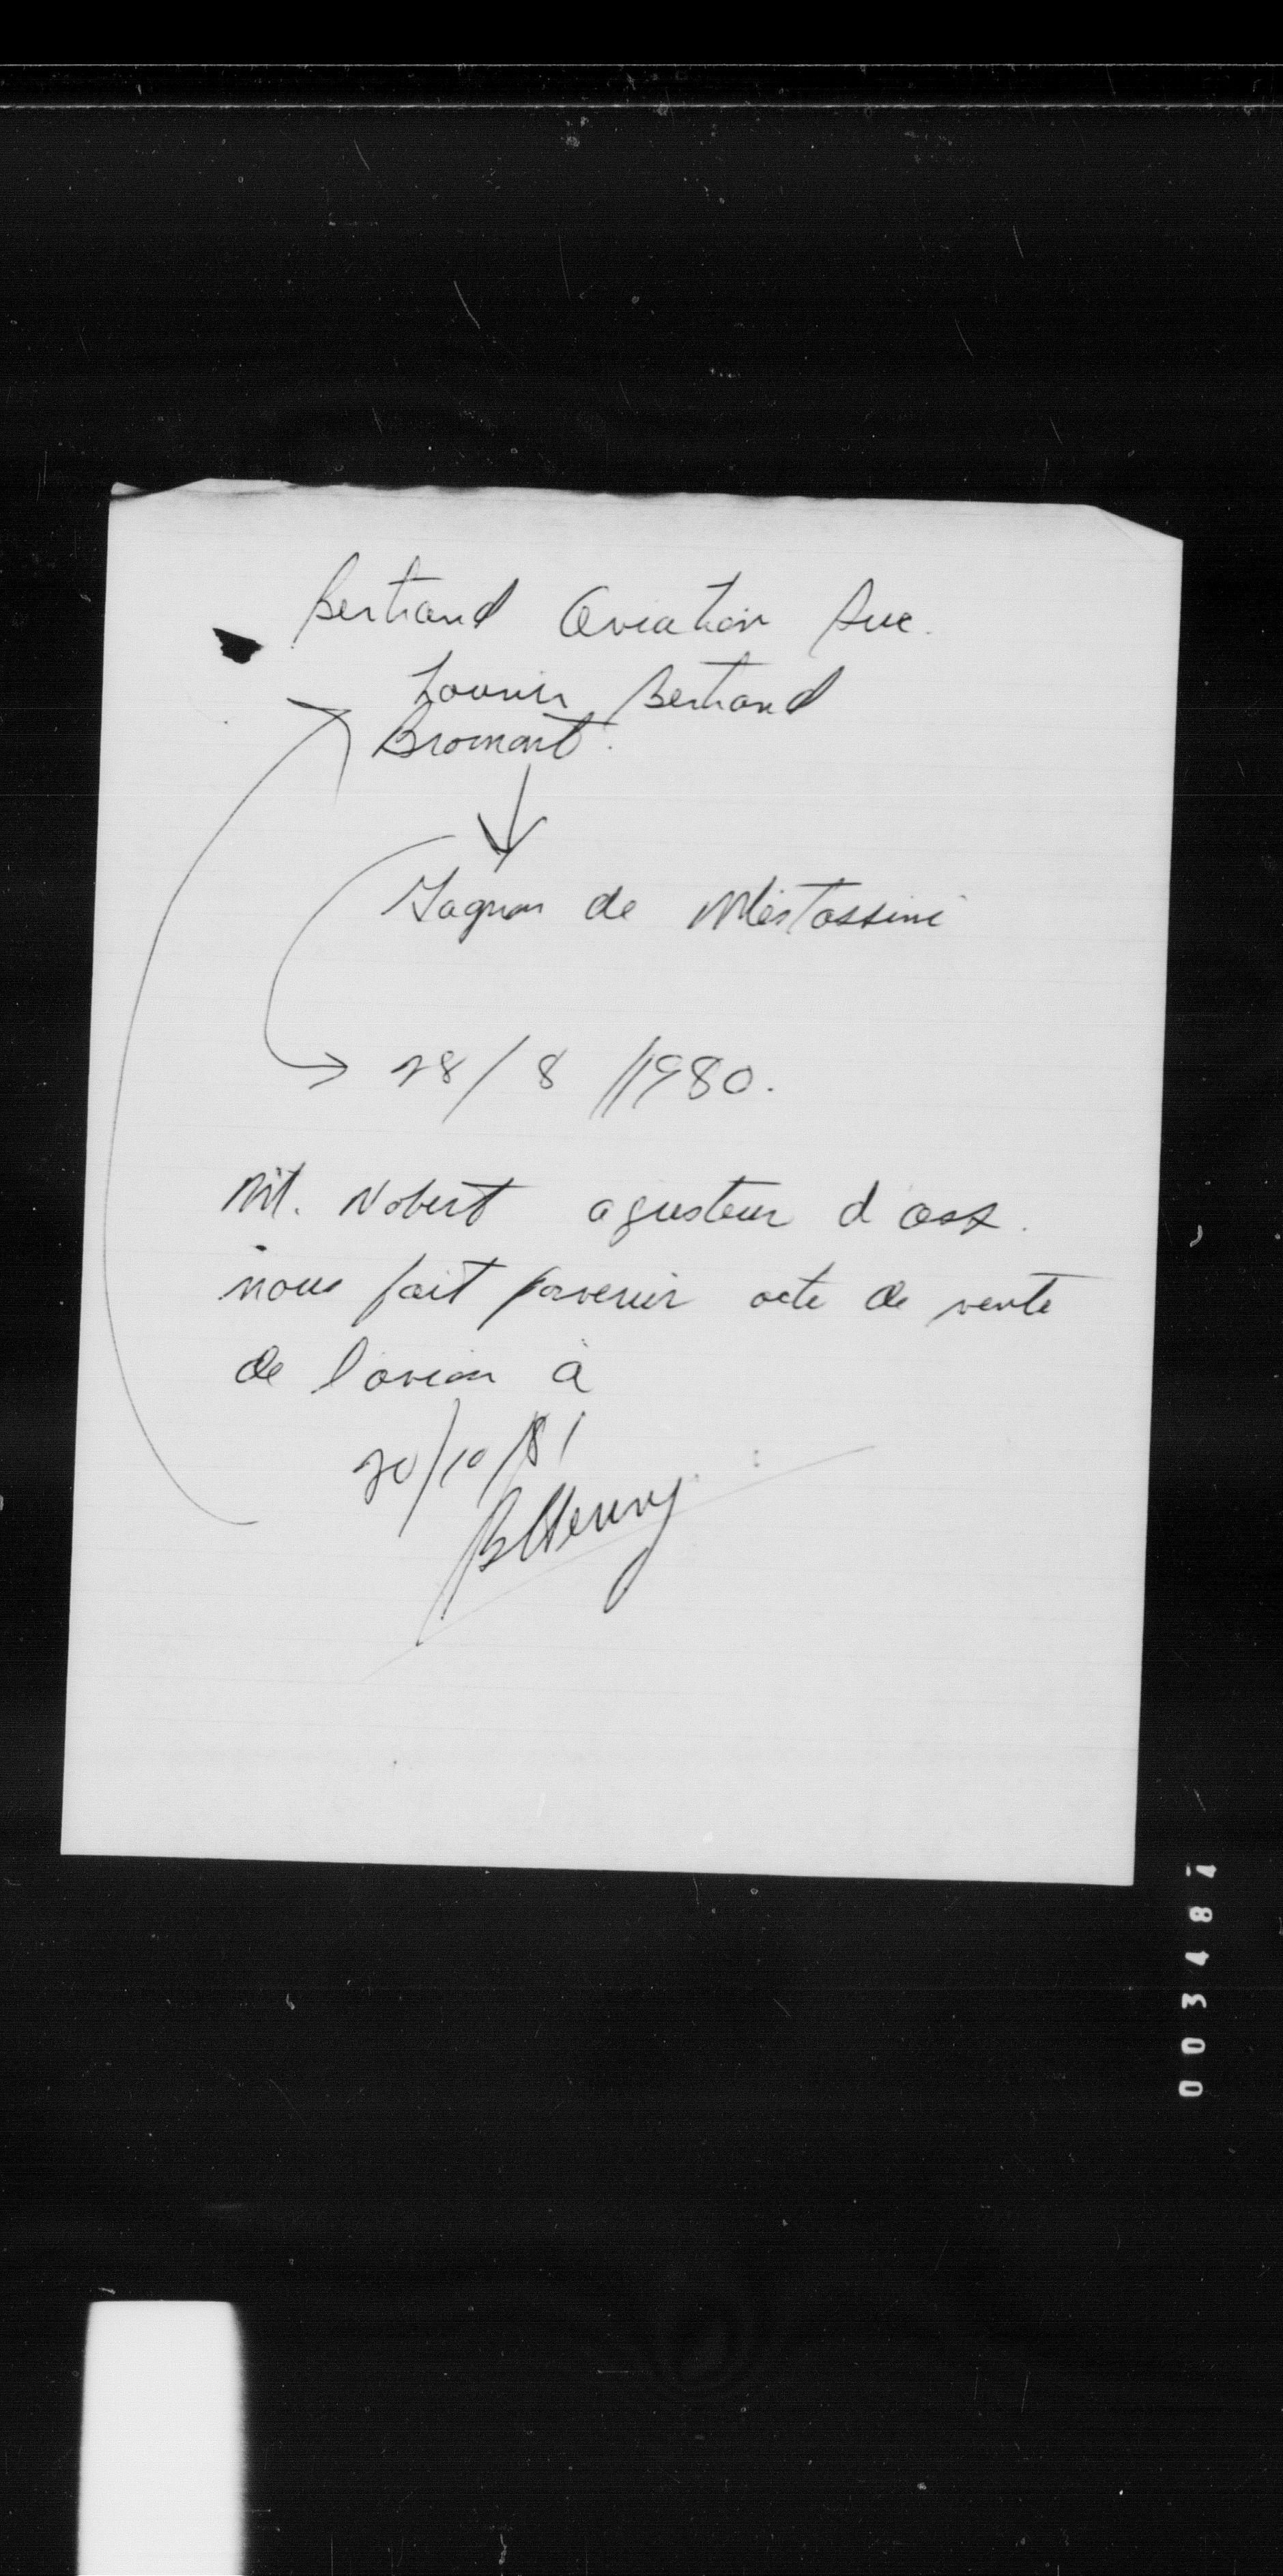 Bertrand Aviation Inc.
Bertrand
Bromont.
Gagnon de Mistassini
28/8/1980.
Mr. Nobert ajusteur d'ass.
nous fait parvenir acte de vente
de l'avion à
20/10/81
BHenry
003487